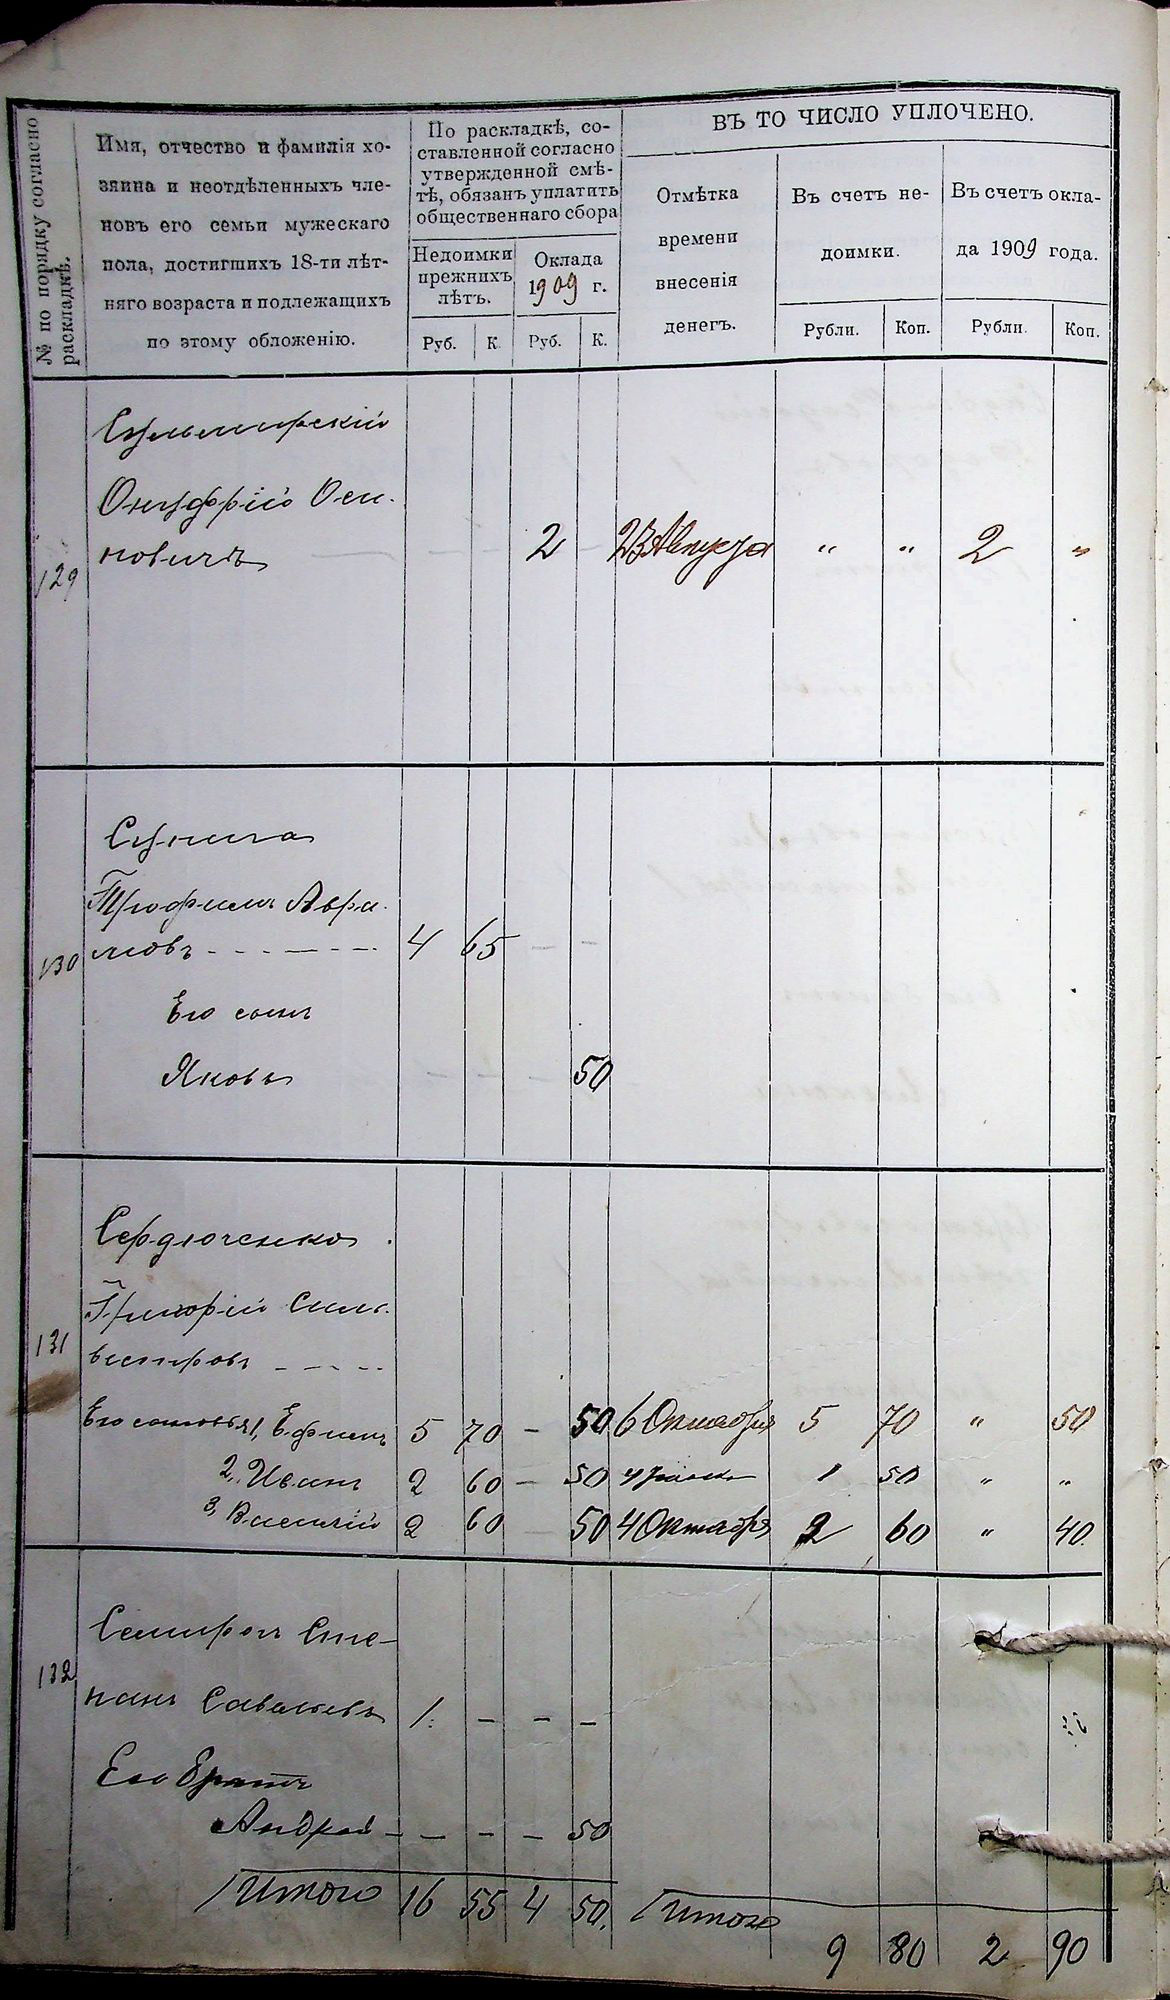 № по порядку согласно
раскладкѣ.
Имя, отчество и фамилія хо-
зяина и неотдѣленныхъ чле-
новъ его семьи мужескаго
пола, достигшихъ 18-ти лѣт-
няго возраста и подлежащихъ
по этому обложенію.
По раскладкѣ, со-
ставленной согласно
утвержденной смѣ-
тѣ, обязанъ уплатить
общественнаго сбора
Недоимки
прежнихъ
лѣтъ.
Оклада
1909 г.
Руб. К. Руб. К.
ВЪ ТО ЧИСЛО УПЛОЧЕНО.
Отмѣтка
времени
внесенія
денегъ.
Въ счетъ не-
доимки.
Въ счетъ окла-
да 1909 года.
Рубли. Коп. Рубли. Коп.
Онуфрій Оси-
129 повичъ — — — 2 — 23 Августа " " 2 "
Трофимъ Аври-
130 мовъ - - - - - 4 65 — —
Его сынъ
Яковъ — — — 50
Сердюченко
Григорій Силь-
131 вестровъ - - - -
Его сыновья 1, Ефимъ 5 70 — 50 6 Октября 5 70 " 50
2, Иванъ 2 60 — 50 4 1 50 " "
3, Василій 2 60 — 50 4 Октября 2 60 " 40.
132 Сте-
панъ Савельевъ 1. — — —
Его братъ
Андрей — — — — 50
Итого 16 55 4 50. Итого
9 80 2 90